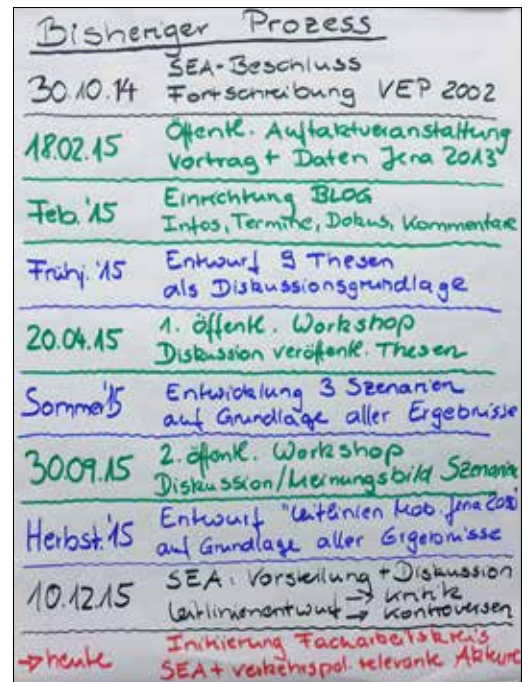 Bisheriger Prozess
30.10.14 SEA-Beschluss
Fortschreibung VEP 2002
18.02.15 Öffentl. Auftaktveranstaltung
Vortrag + Daten Jena 2013
Feb. '15 Einrichtung BLOG
Infos, Termine, Dokus, Kommentare
Frühj. '15 Entwurf 9 Thesen
als Diskussionsgrundlage
20.04.15 1. öffentl. Workshop
Diskussion veröffentl. Thesen
Sommer '15 Entwicklung 3 Szenarien
auf Grundlage aller Ergebnisse
30.09.15 2. öffentl. Workshop
Diskussion/Meinungsbild Szenarie
Herbst '15 Entwurf "Leitlinien Mob. Jena
auf Grundlage aller Ergebnisse
10.12.15 SEA: Vorstellung + Diskussion
Leitlinienentwurf → Kritik
→ Kontroversen
→ heute Initiierung Facharbeitskreis
SEA + verkehrspol. relevante Akteure